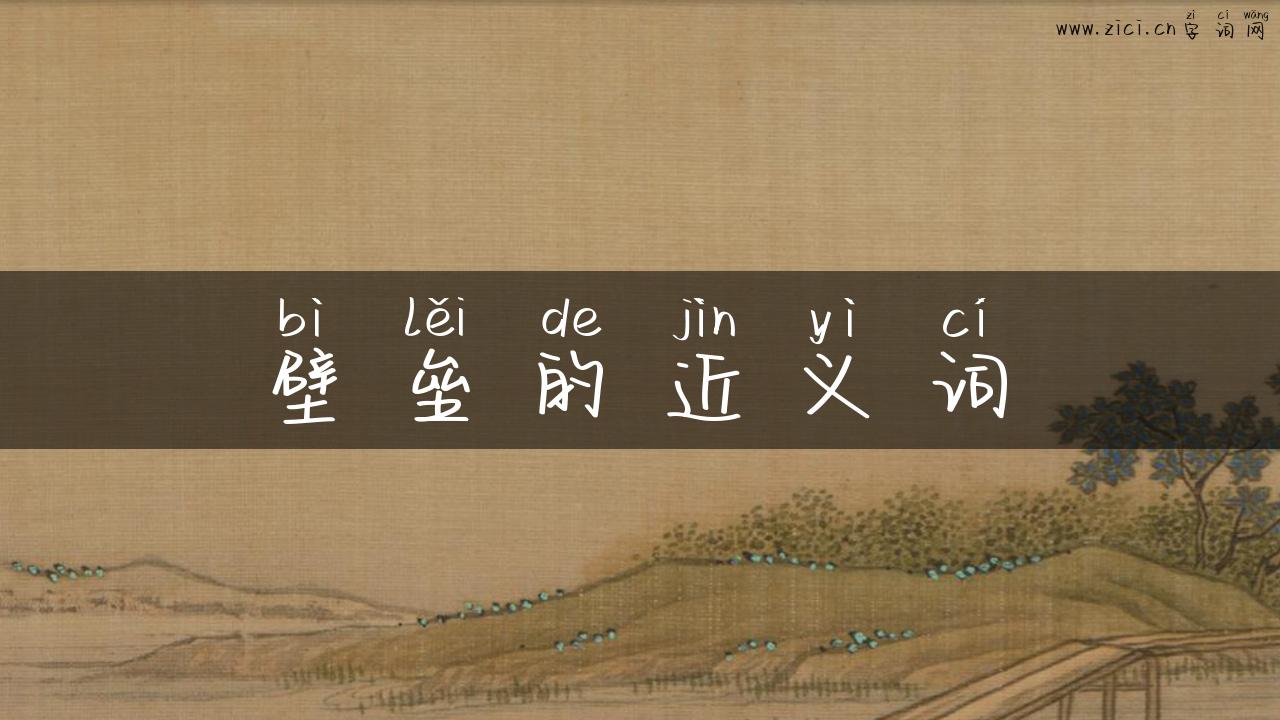 zì cí wǎng
www.zici.cn字词网
bì lěi de jìn yì cí
壁垒的近义词